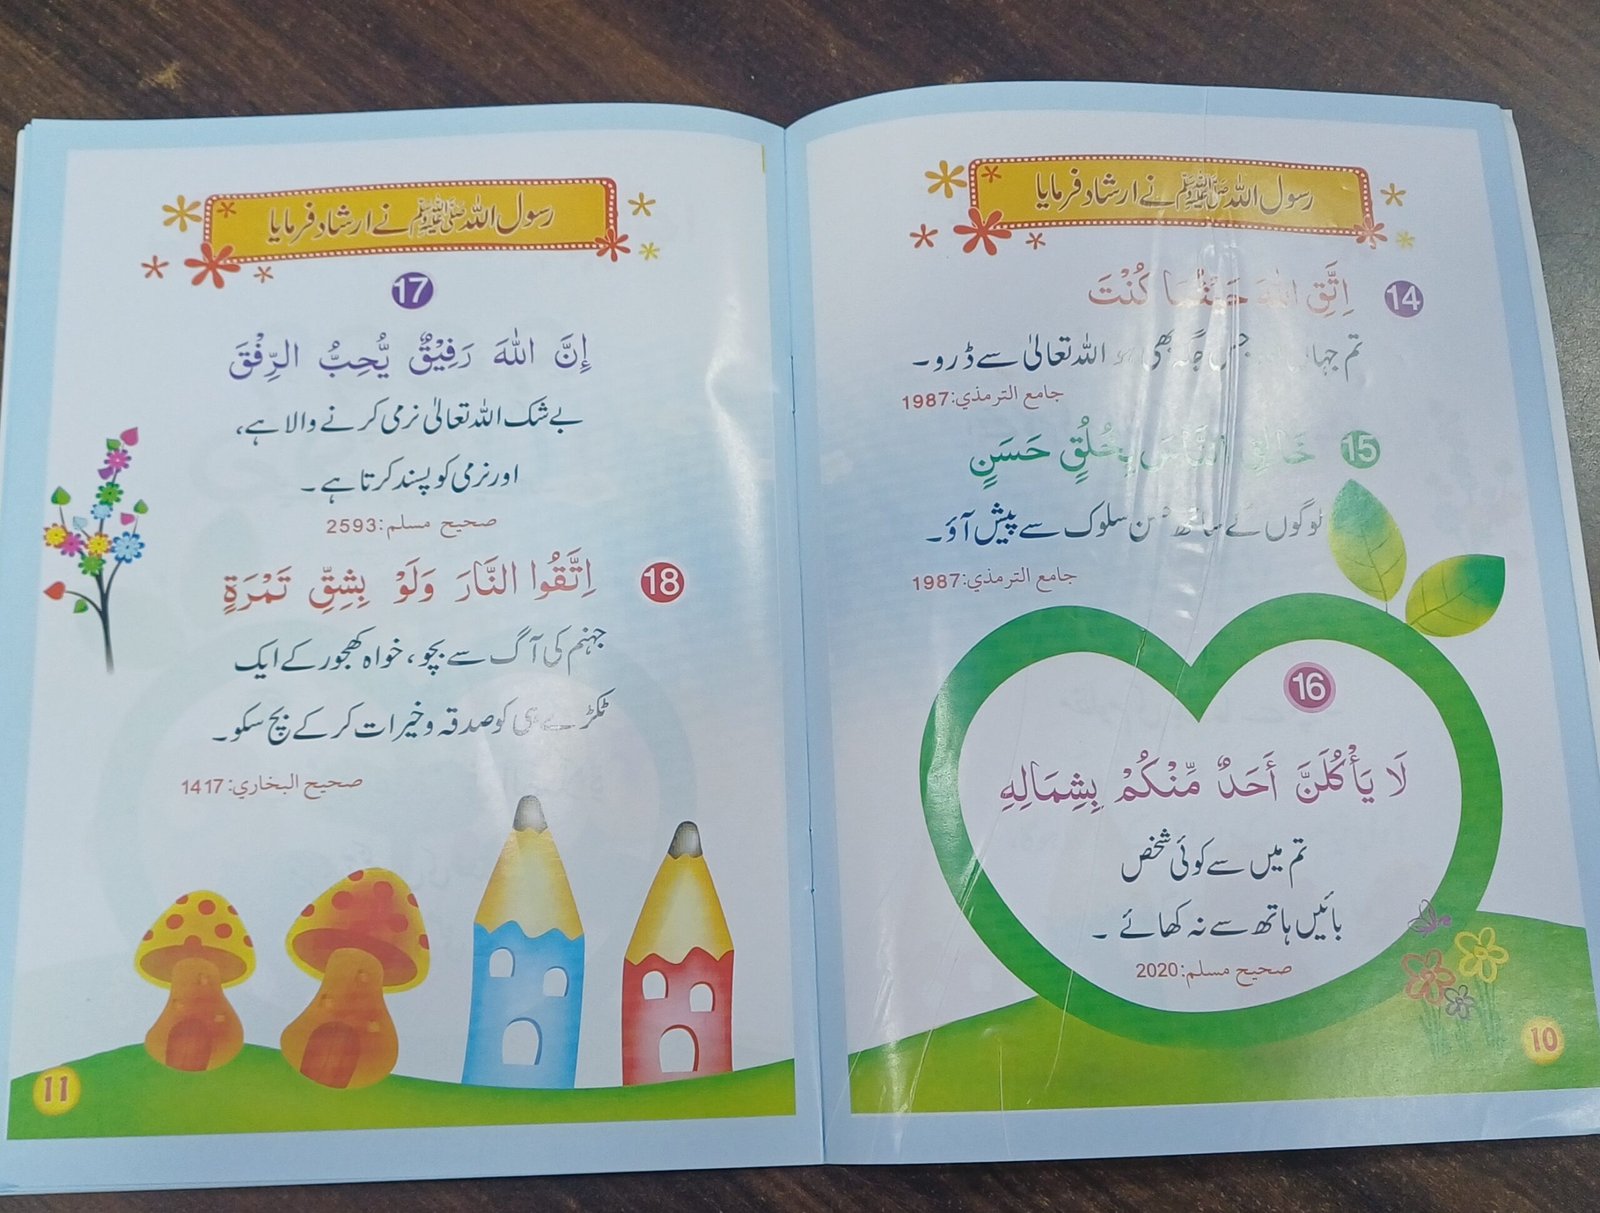 رسول اللہ ﷺ نے ارشاد فرمایا
14
اِتَّقِ اللّٰهَ حَيْثُمَا كُنْتَ
تم جہاں جس جگہ بھی ہو اللہ تعالیٰ سے ڈرو۔
جامع الترمذي:1987
15
خَالِقِ النَّاسَ بِخُلُقٍ حَسَنٍ
لوگوں کے ساتھ حسن سلوک سے پیش آؤ۔
جامع الترمذي:1987
16
لَا يَأْكُلَنَّ أَحَدٌ مِّنْكُمْ بِشِمَالِهِ
تم میں سے کوئی شخص
بائیں ہاتھ سے نہ کھائے ۔
صحيح مسلم:2020
10
رسول اللہ ﷺ نے ارشاد فرمایا
17
إِنَّ اللّٰهَ رَفِيْقٌ يُّحِبُّ الرِّفْقَ
بے شک اللہ تعالیٰ نرمی کرنے والا ہے،
اور نرمی کو پسند کرتا ہے۔
صحيح مسلم:2593
18
اِتَّقُوا النَّارَ وَلَوْ بِشِقِّ تَمْرَةٍ
جہنم کی آگ سے بچو، خواہ کھجور کے ایک
ٹکڑے ہی کو صدقہ و خیرات کر کے بچ سکو۔
صحيح البخاري:1417
11